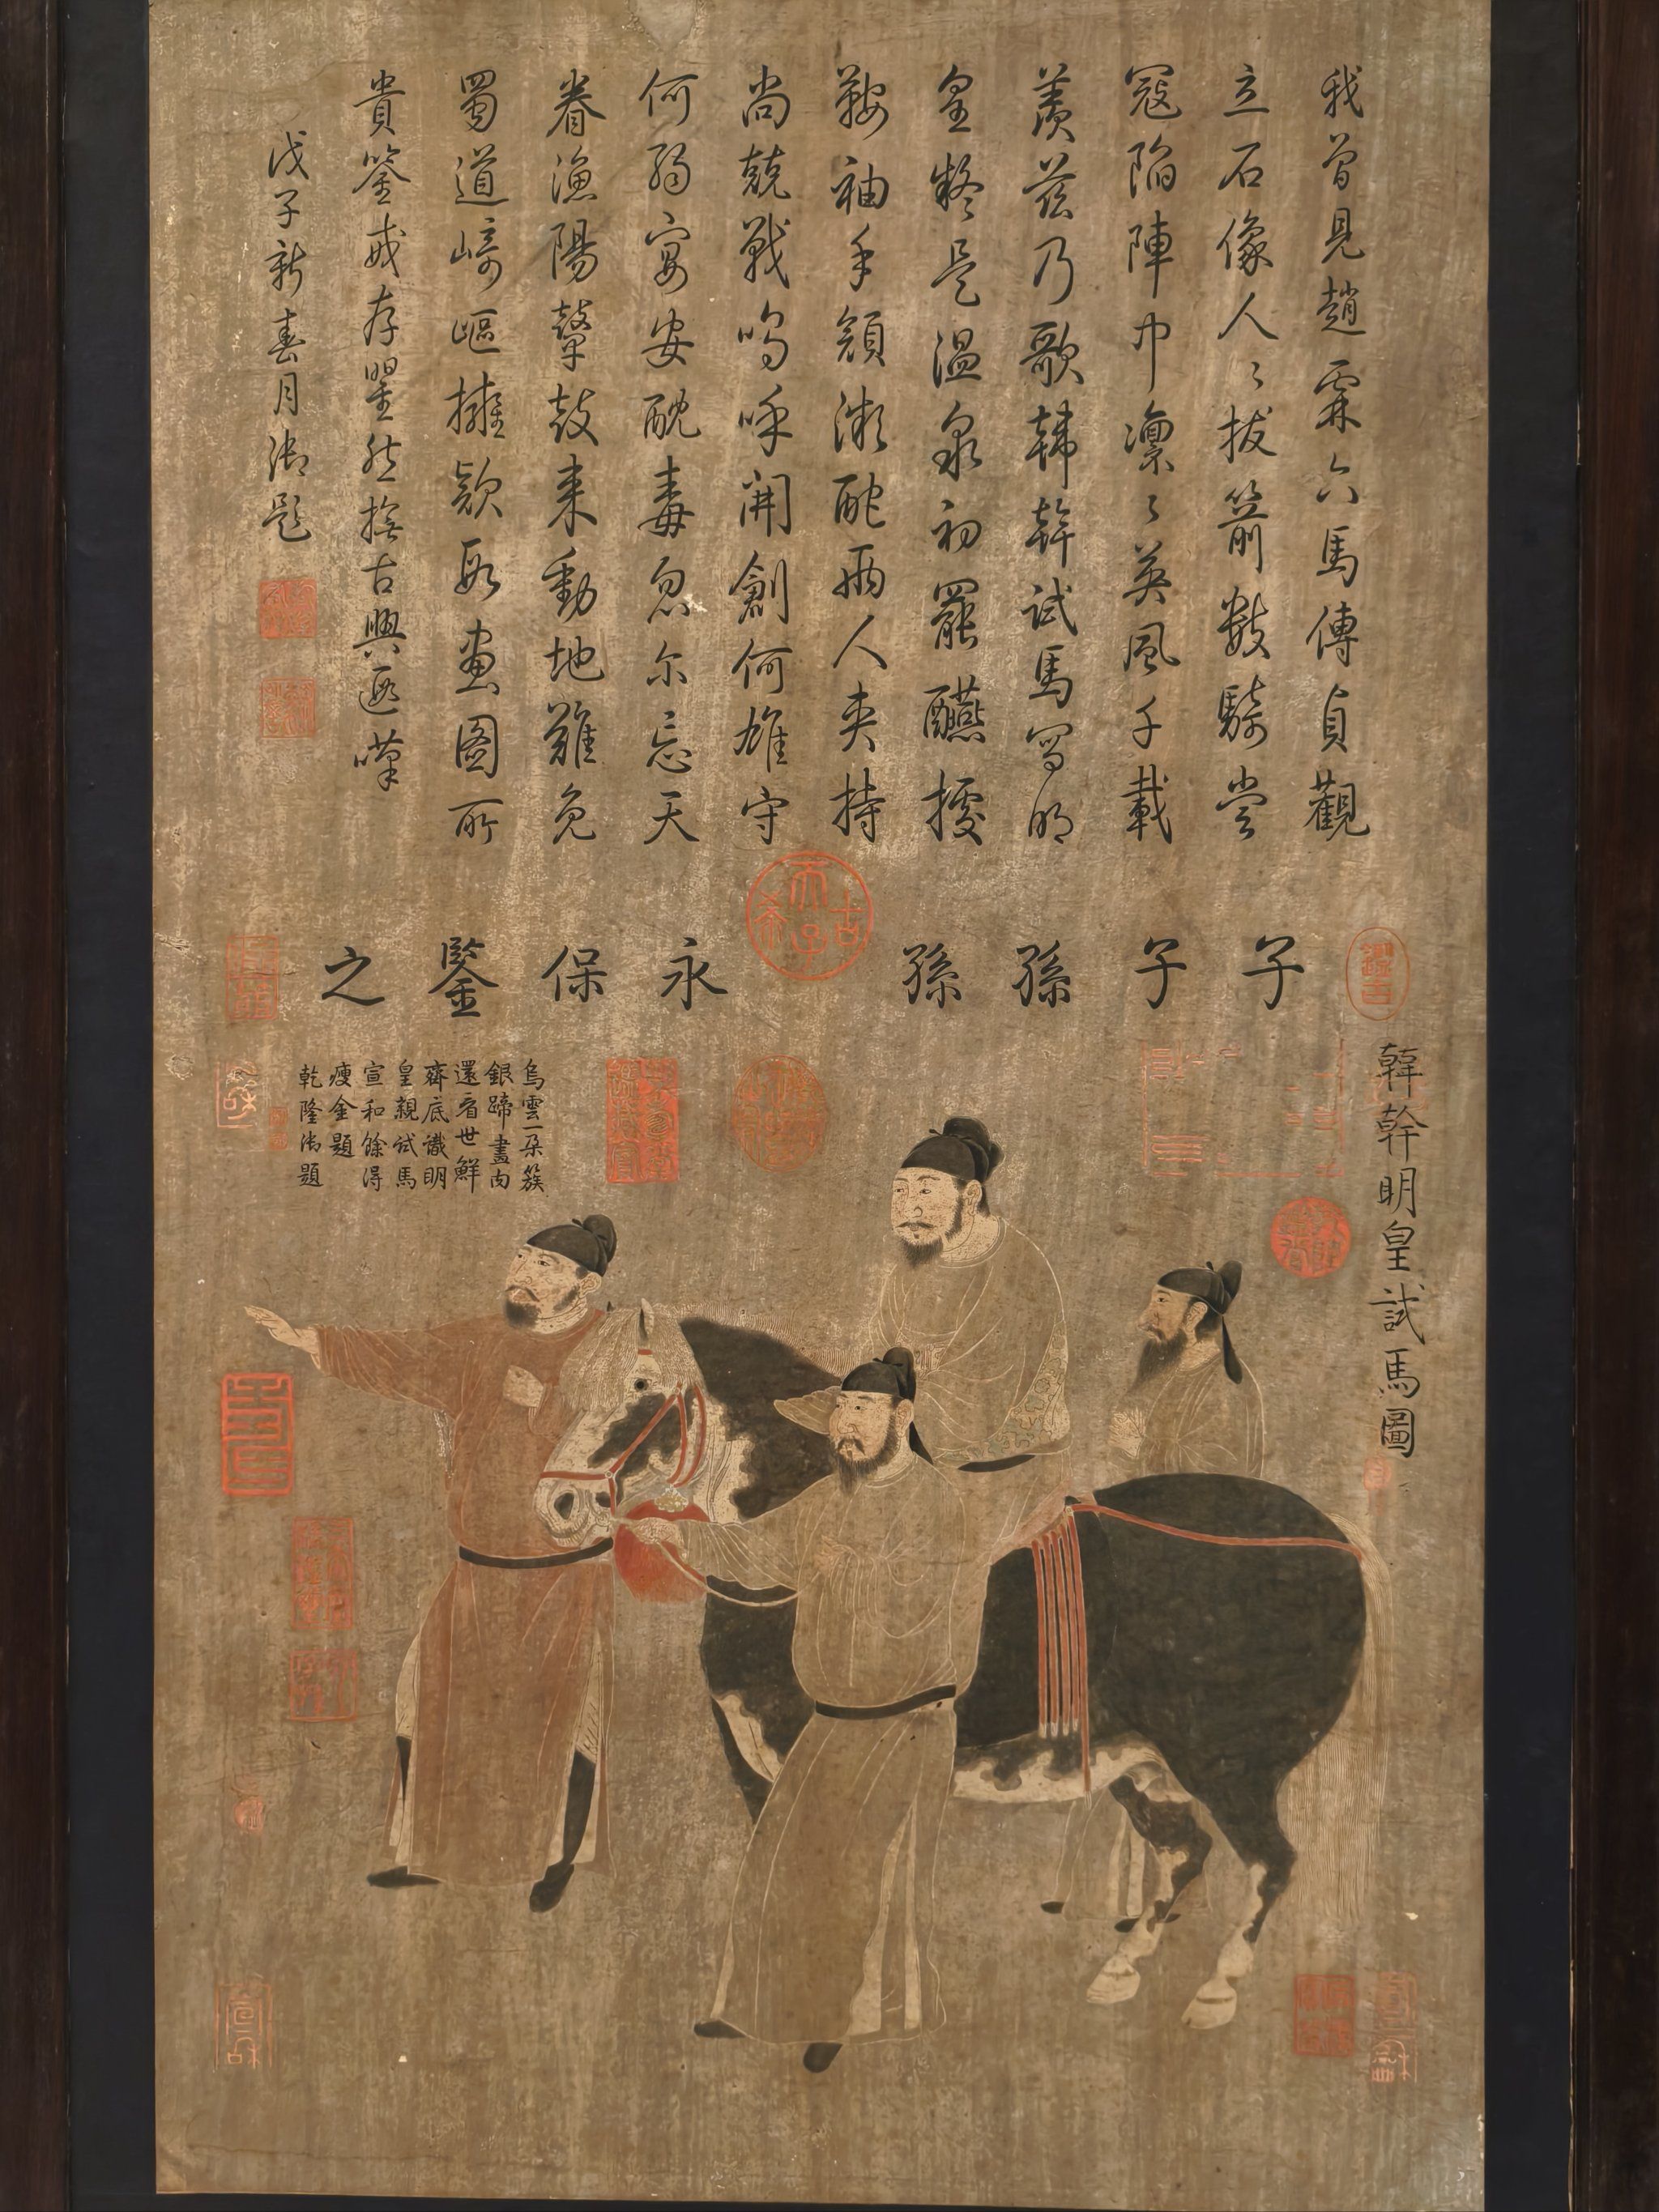 我曾見趙霖六馬傳貞觀
立石像人〻拔箭數騎嘗
寇陷陣中凜〻英風千載
羨茲乃歌韓幹試馬寫明
皇疑是溫泉初罷醼據
鞍袖手顏微酡兩人夾持
尚兢戰嗚呼開創何雄守
何弱宴安酖毒忽尔忘天
眷漁陽鼙鼓来動地難免
蜀道崎嶇擁欵段畫圖所
貴鑒戒存瞿然撫古興遐嘆
戊子新春月御題
古希天子
子子孫孫永保鑒之
韓幹明皇試馬圖
烏雲一朵簇
銀蹄畫肉
還看世鮮
齊底識明
皇親試馬
宣和餘得
瘦金題
乾隆御題
宣和